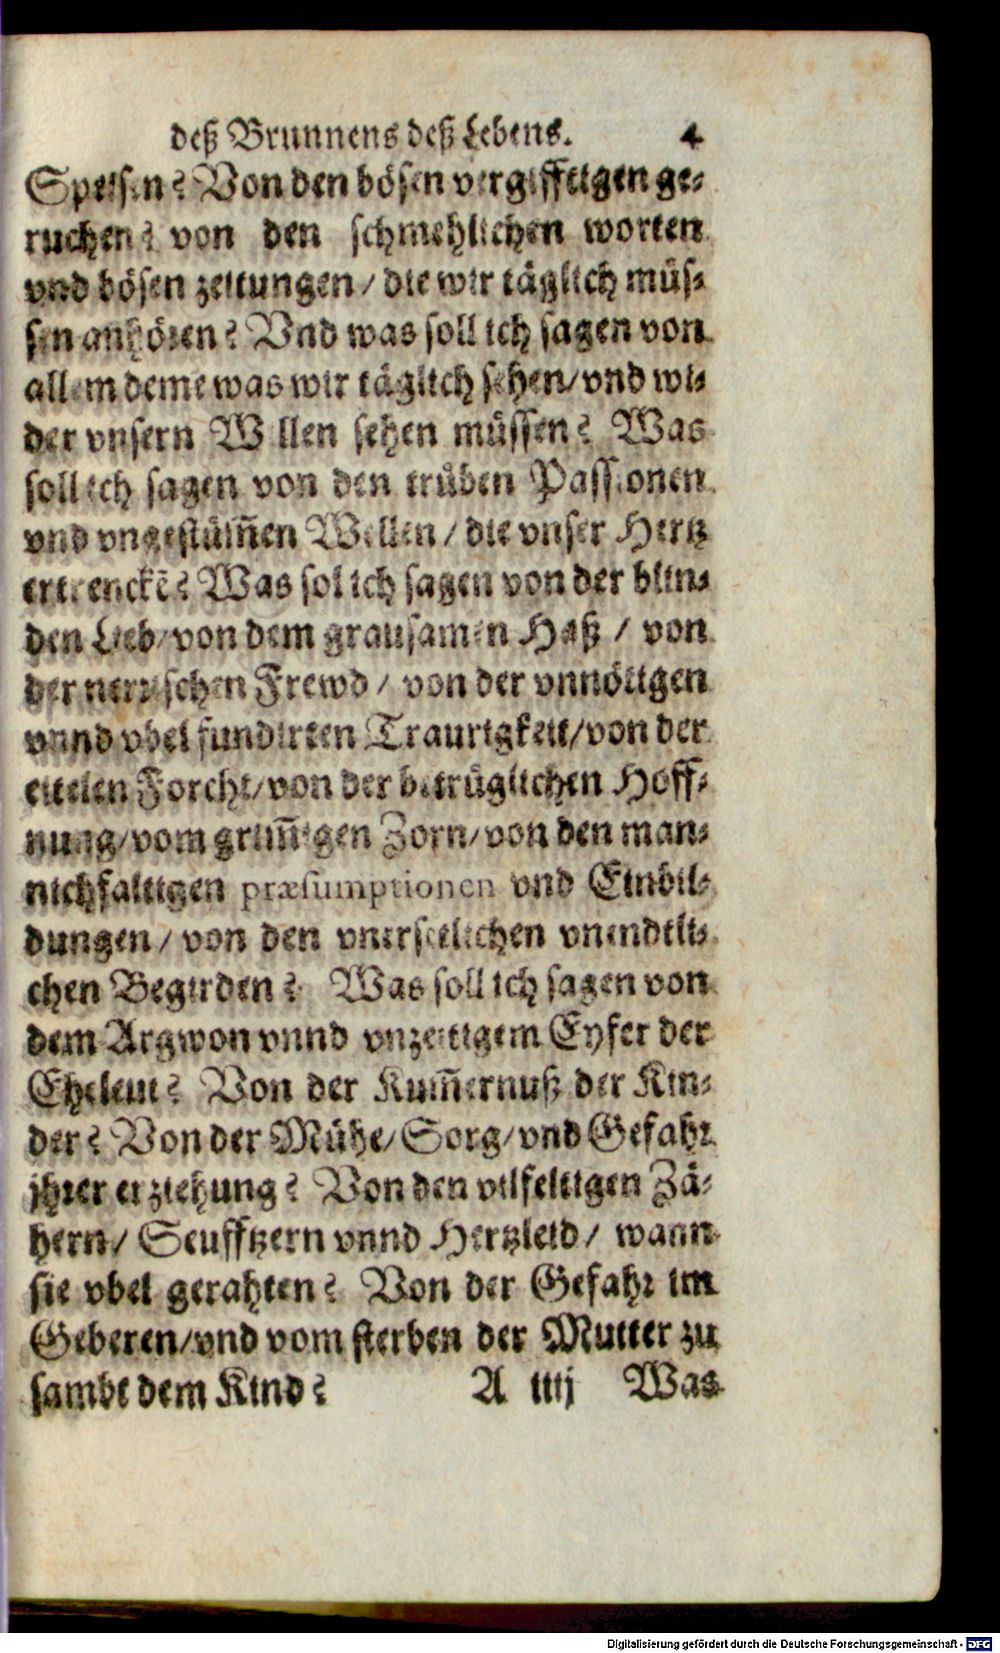 deß Brunnens deß Lebens. 4
Speisen? Von den bösen vergifftigen ge-
ruchen? von den schmehlichen worten
vnd bösen zeitungen / die wir täglich müs-
sen anhören? Vnd was soll ich sagen von
allem deme was wir täglich sehen / vnd wi-
der vnsern Willen sehen müssen? Was
soll ich sagen von den trüben Passionen
vnd vngestüm̃en Wellen / die vnser Hertz
ertrenckẽ? Was sol ich sagen von der blin-
den Lieb / von dem grausamen Haß / von
der nerrischen Frewd / von der vnnötigen
vnnd vbel fundirten Traurigkeit / von der
eitelen Forcht / von der betrüglichen Hoff-
nung / vom grim̃igen Zorn / von den man-
nichfaltigen præsumptionen vnd Einbil-
dungen / von den vnersetlichen vnendtli-
chen Begirden? Was soll ich sagen von
dem Argwon vnnd vnzeitigem Eyfer der
Eheleut? Von der Kum̃ernuß der Kin-
der? Von der Mühe / Sorg / vnd Gefahr
jhrer erziehung? Von den vilfeltigen Zä-
hern / Seufftzern vnnd Hertzleid / wann
sie vbel gerahten? Von der Gefahr im
Geberen / vnd vom sterben der Mutter zu
sambt dem Kind? A iiij Was
Digitalisierung gefördert durch die Deutsche Forschungsgemeinschaft - DFG